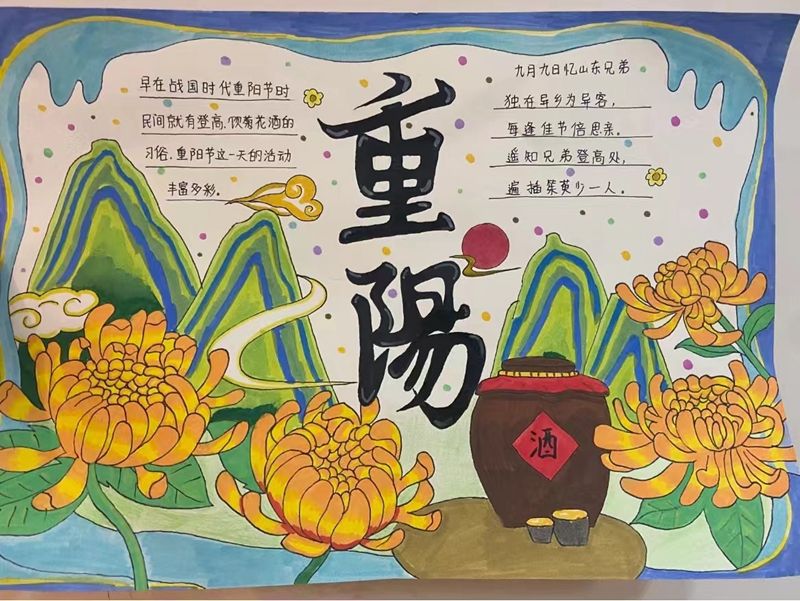 早在战国时代重阳节时
民间就有登高.饮菊花酒的
习俗.重阳节这一天的活动
丰富多彩.
重
陽
九月九日忆山东兄弟
独在异乡为异客,
每逢佳节倍思亲.
遥知兄弟登高处,
遍插茱萸少一人.
酒